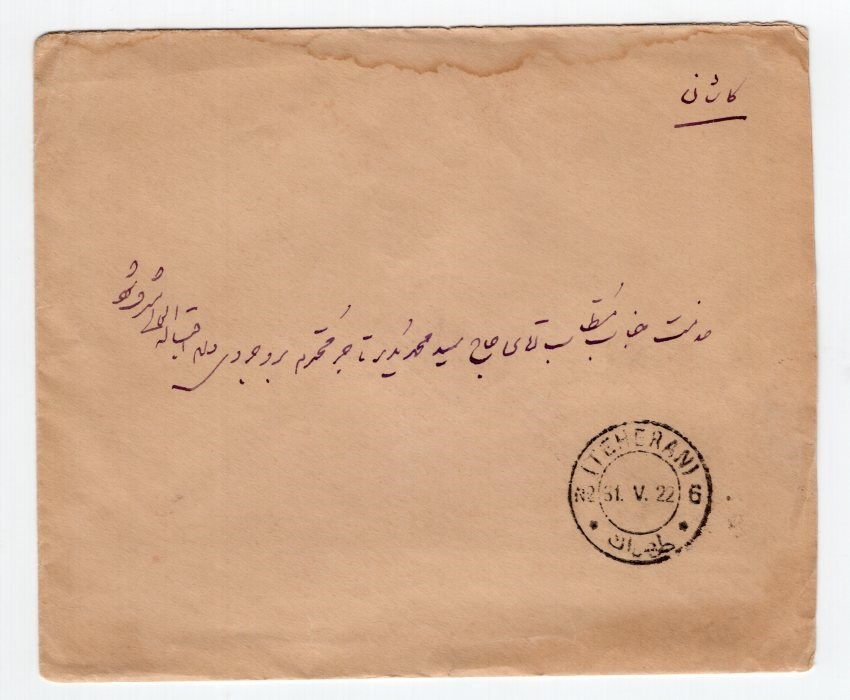 کاشان
خدمت جناب مستطاب آقای حاج سید محمد تاجر محترم بروجردی دام اقباله العالی مشرف شود
(TEHERAN)
№ 31. V. 22 6
طهران